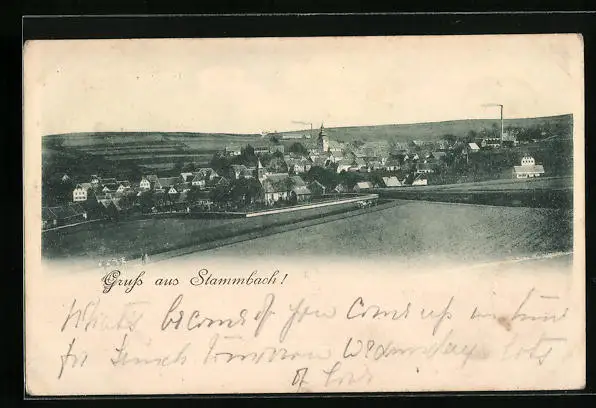 Gruß aus Stammbach!
Whats becomes of you Come up in time
for lunch tomorrow Wednesday Lots
of love